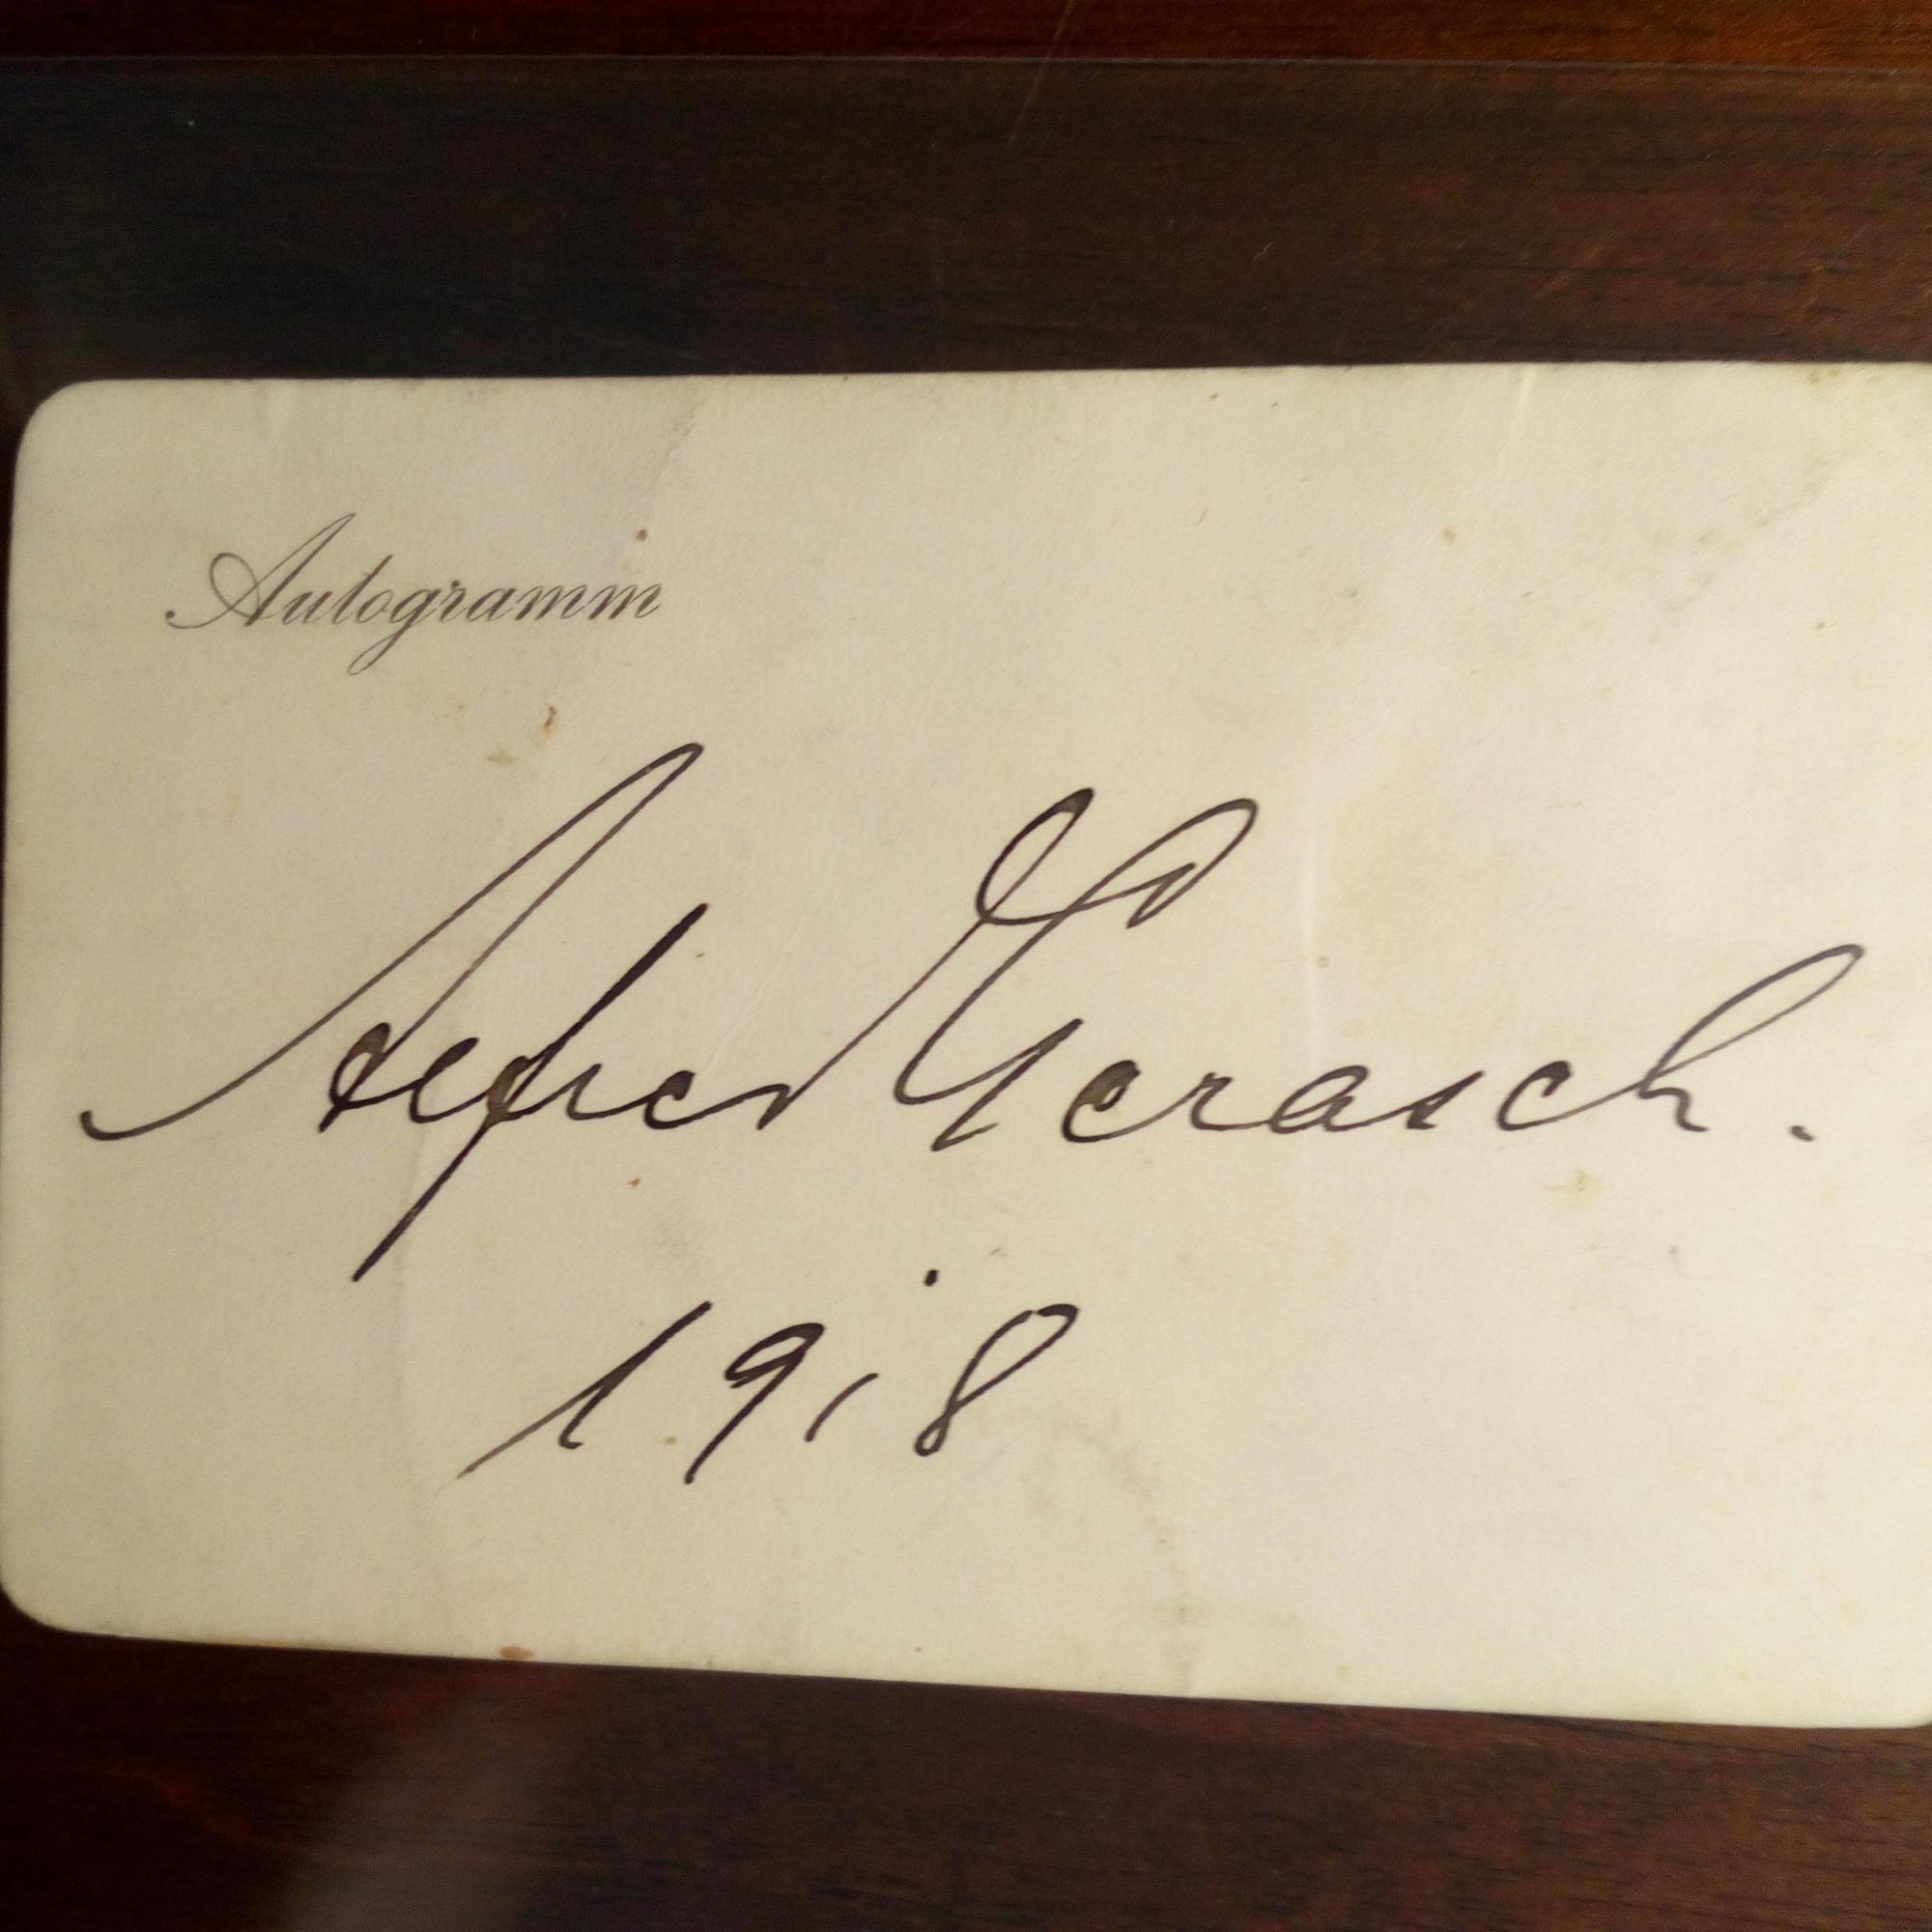 Autogramm
Alfred Gerasch.
1918